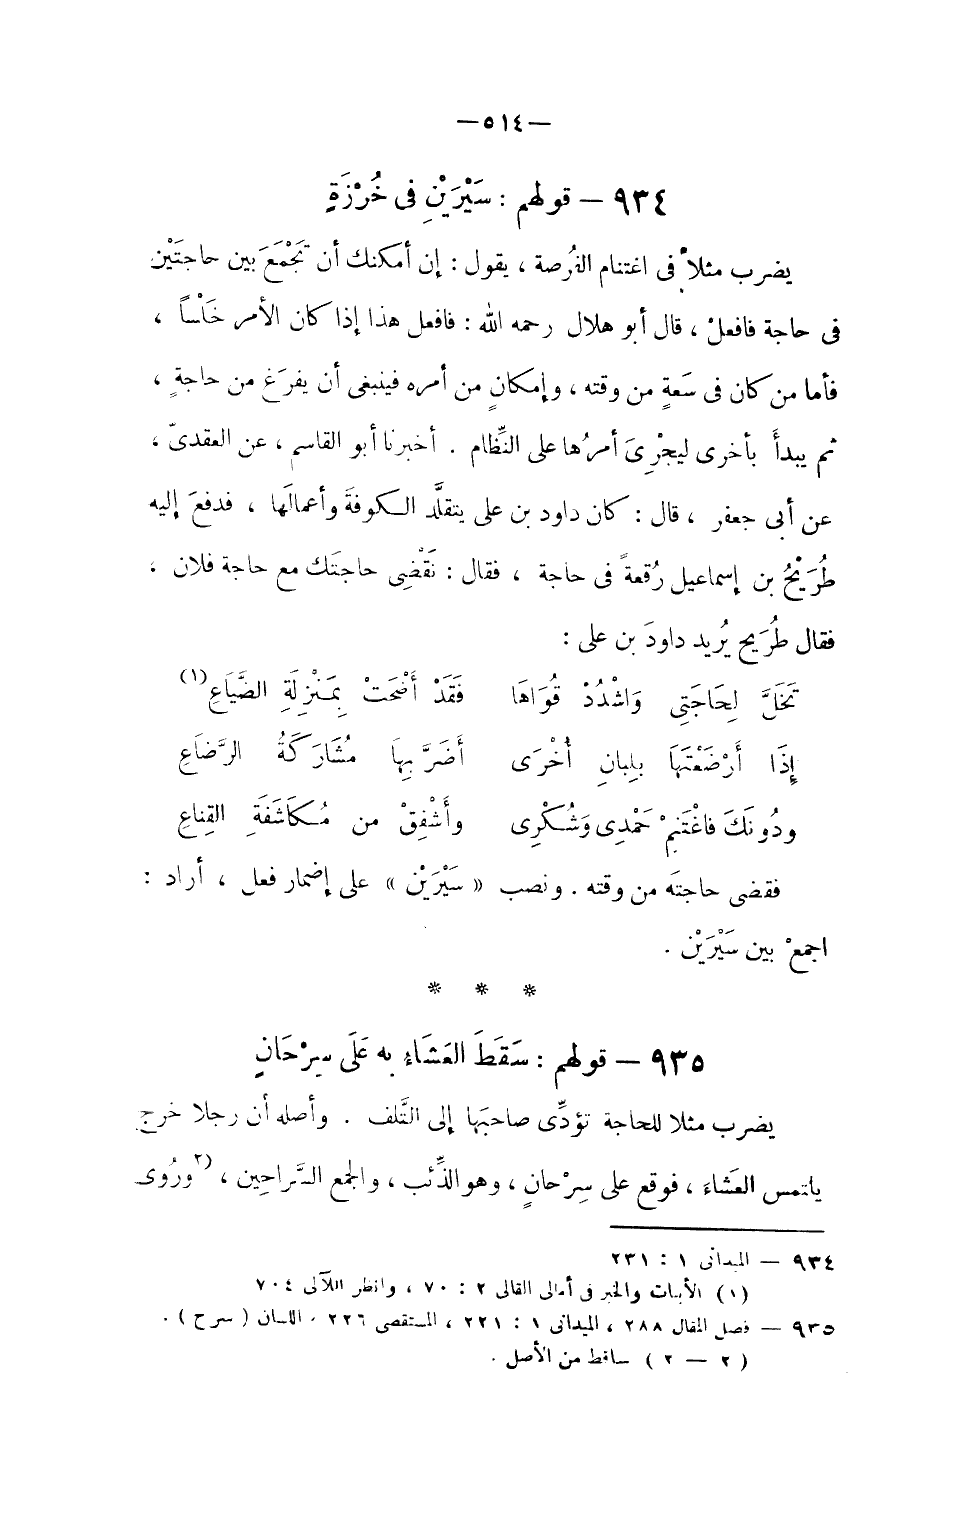 —٥١٤—
٩٣٤ — قولهم : سَيْرَيْنِ فى خُرْزَةٍ
يضرب مثلاً فى اغتنام الفُرصة ، يقول : إن أمكنك أن تَجْمَعَ بين حاجتَيْن
فى حاجة فافعلْ ، قال أبو هلال رحمه الله : فافعل هذا إذا كان الأمر خَلْساً ،
فأما من كان فى سَعةٍ من وقته ، وإمكانٍ من أمره فينبغى أن يفرَغ من حاجةٍ ،
ثم يبدأَ بأخرى ليجْرِىَ أمرُها على النِّظام . أخبرنا أبو القاسم ، عن العقدىّ ،
عن أبى جعفر ، قال : كان داود بن على يتقلَّد الكوفةَ وأعمالَها ، فدفعَ إليه
طُرَيْحُ بن إسماعيل رُقعةً فى حاجة ، فقال : نَقْضِى حاجتَك مع حاجة فلان ،
فقال طُرَيح يُريد داودَ بن على :
تَخَلَّ لِحَاجَتِى وَاشْدُدْ قُوَاهَا فَقَدْ أَضْحَتْ بِمَنْزِلَةِ الضَّيَاعِ(١)
إِذَا أَرْضَعْتَهَا بِلِبانِ أُخْرَى أَضَرَّ بِهَا مُشَارَكَةُ الرَّضَاعِ
ودُونَكَ فاغْتَنِمْ حَمْدِى وَشُكْرِى وأَشْفِقْ من مُكَاشَفَةِ القِناعِ
فقضى حاجتَه من وقته . ونصب « سَيْرَيْن » على إضمار فعل ، أراد :
اجمعْ بين سَيْرَيْن .
* * *
٩٣٥ — قولهم : سَقَطَ العَشَاءُ به عَلَى سِرْحَانٍ
يضرب مثلا للحاجة تؤدِّى صاحبَها إلى التَّلف . وأصله أن رجلا خرج
يلتمس العَشاءَ ، فوقع على سِرْحانٍ ، وهو الذِّئب ، والجمع السَّراحِين ، (٢ورُوى
٩٣٤ — الميدانى ١ : ٢٣١
(١) الأبيات والخبر فى أمالى القالى ٢ : ٧٠ ، وانظر اللآلى ٧٠٤
٩٣٥ — فصل المقال ٢٨٨ ، الميدانى ١ : ٢٢١ ، المستقصى ٢٢٦ ، اللسان ( سرح ) .
( ٢ — ٢ ) ساقط من الأصل .